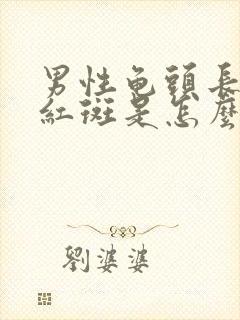 男性龜頭長
紅斑是怎麼
劉婆婆